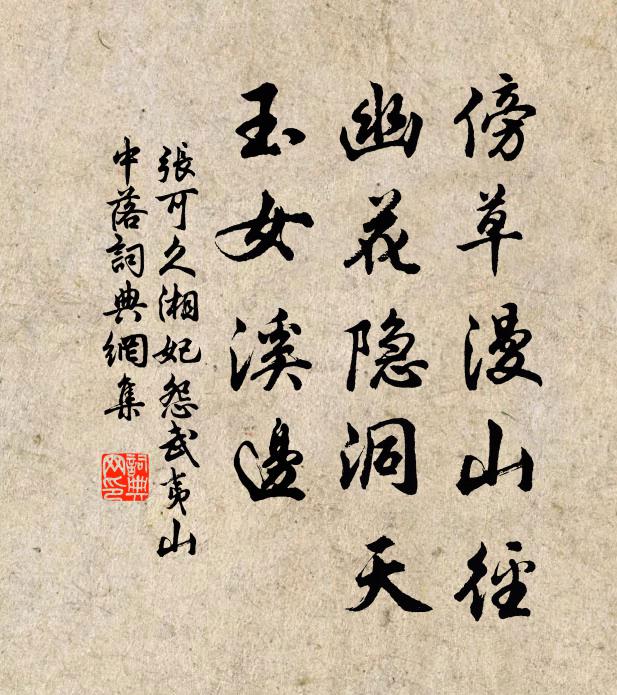 傍草漫山径
幽花隐洞天
玉女溪邊
張可久湘妃怨武夷山
中落詞典網集
詞典
网印